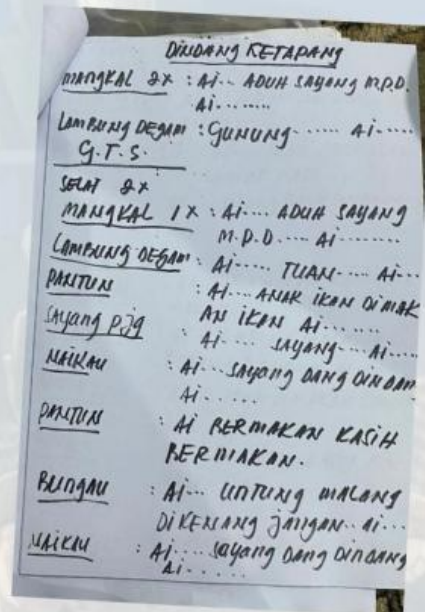 DINDANG KETAPANG
MANGKAL 2X : Ai... ADUH SAYANG M.P.D.
Ai........
LAMBUNG DEGAM : GUNUNG...... Ai.....
G.T.S.
SELAT 2X
MANGKAL 1X : Ai.... ADUH SAYANG
M.P.D.... Ai........
LAMBUNG DEGAM : Ai..... TUAN..... Ai...
PANTUN : Ai.... ANAK IKAN DIMAK
AN IKAN Ai.......
SAYANG PJG : Ai.... SAYANG.... Ai.....
NAIKAU : Ai... SAYANG DANG DINDAN
Ai.....
PANTUN : Ai BERMAKAN KASIH
BERMAKAN.
BUNGAU : Ai... UNTUNG MALANG
DIKENANG JANGAN.. Ai...
NAIKAU : Ai.... SAYANG DANG DINDANG
Ai......